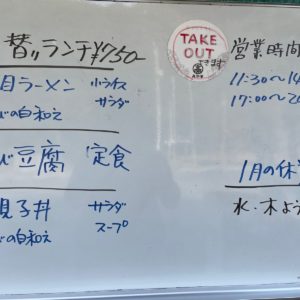 替ﾘランチ¥750-
目ラーメン 小ライス
サラダ
の白和え
豆腐 定食
親子丼 サラダ
の白和え スープ
TAKE
OUT
できます
営業時間
11:30~14
17:00~2
1月の休
水・木よう